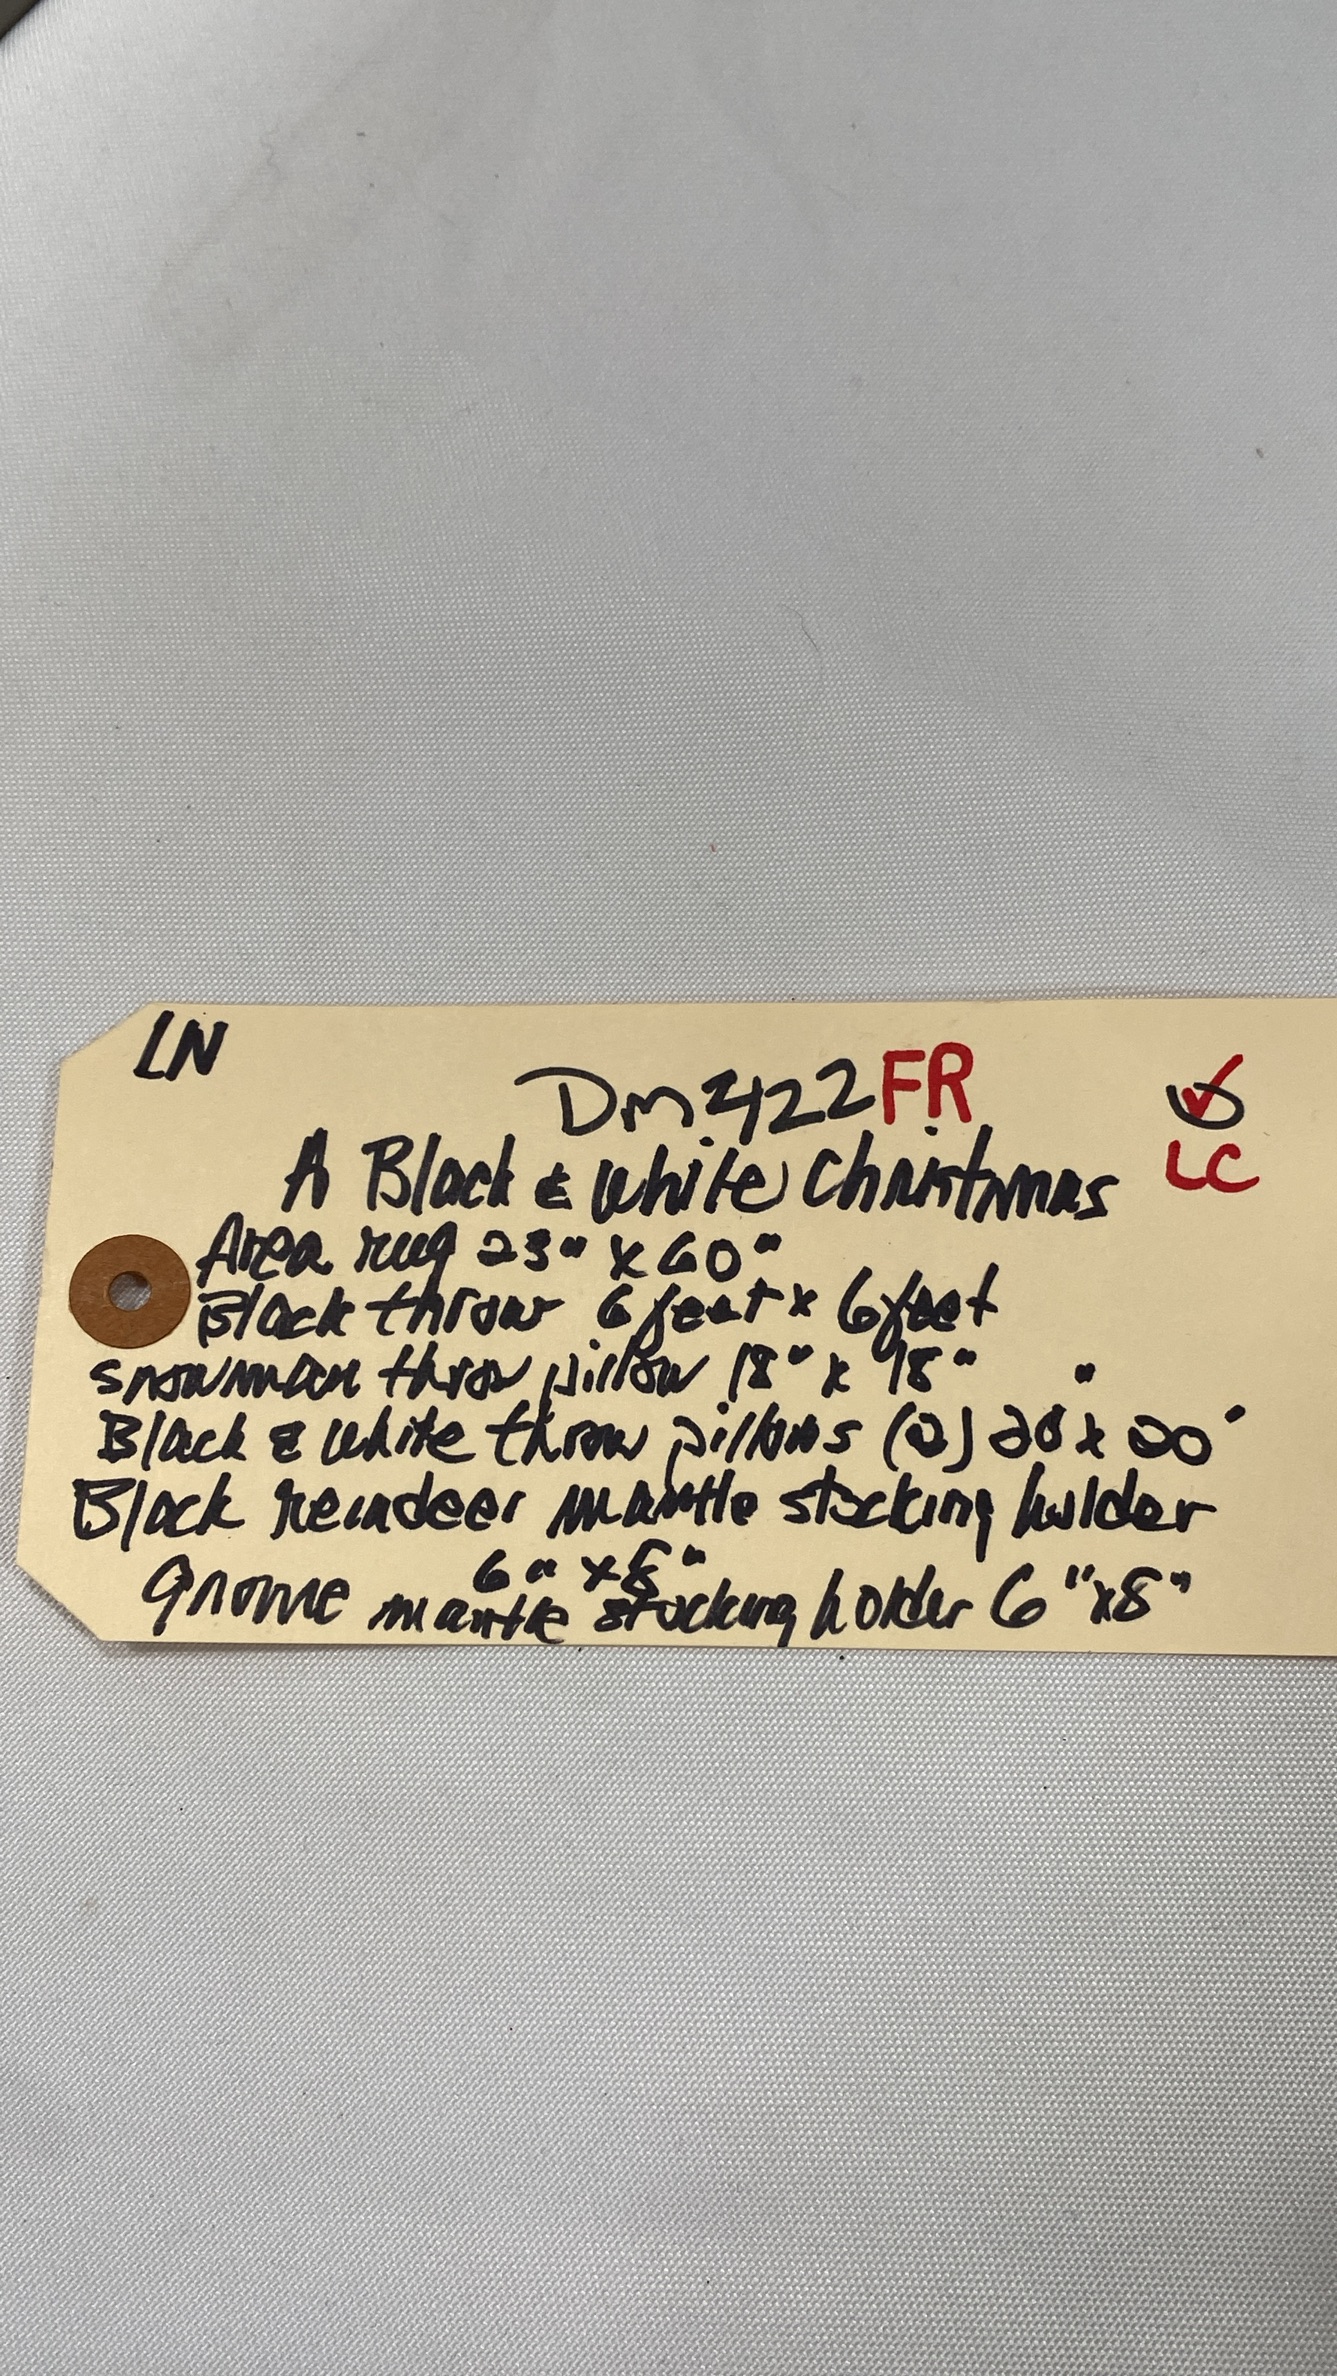 LN
Dm2422FR
LC
A Black & White Christmas
Area rug 23" x 60"
Black throw 6 feet x 6 feet
snowman throw pillow 18" x 18"
Black & White throw pillows (2) 20" x 20"
Black reindeer mantle stocking holder
6" x 8"
Gnome mantle stocking holder 6" x 8"